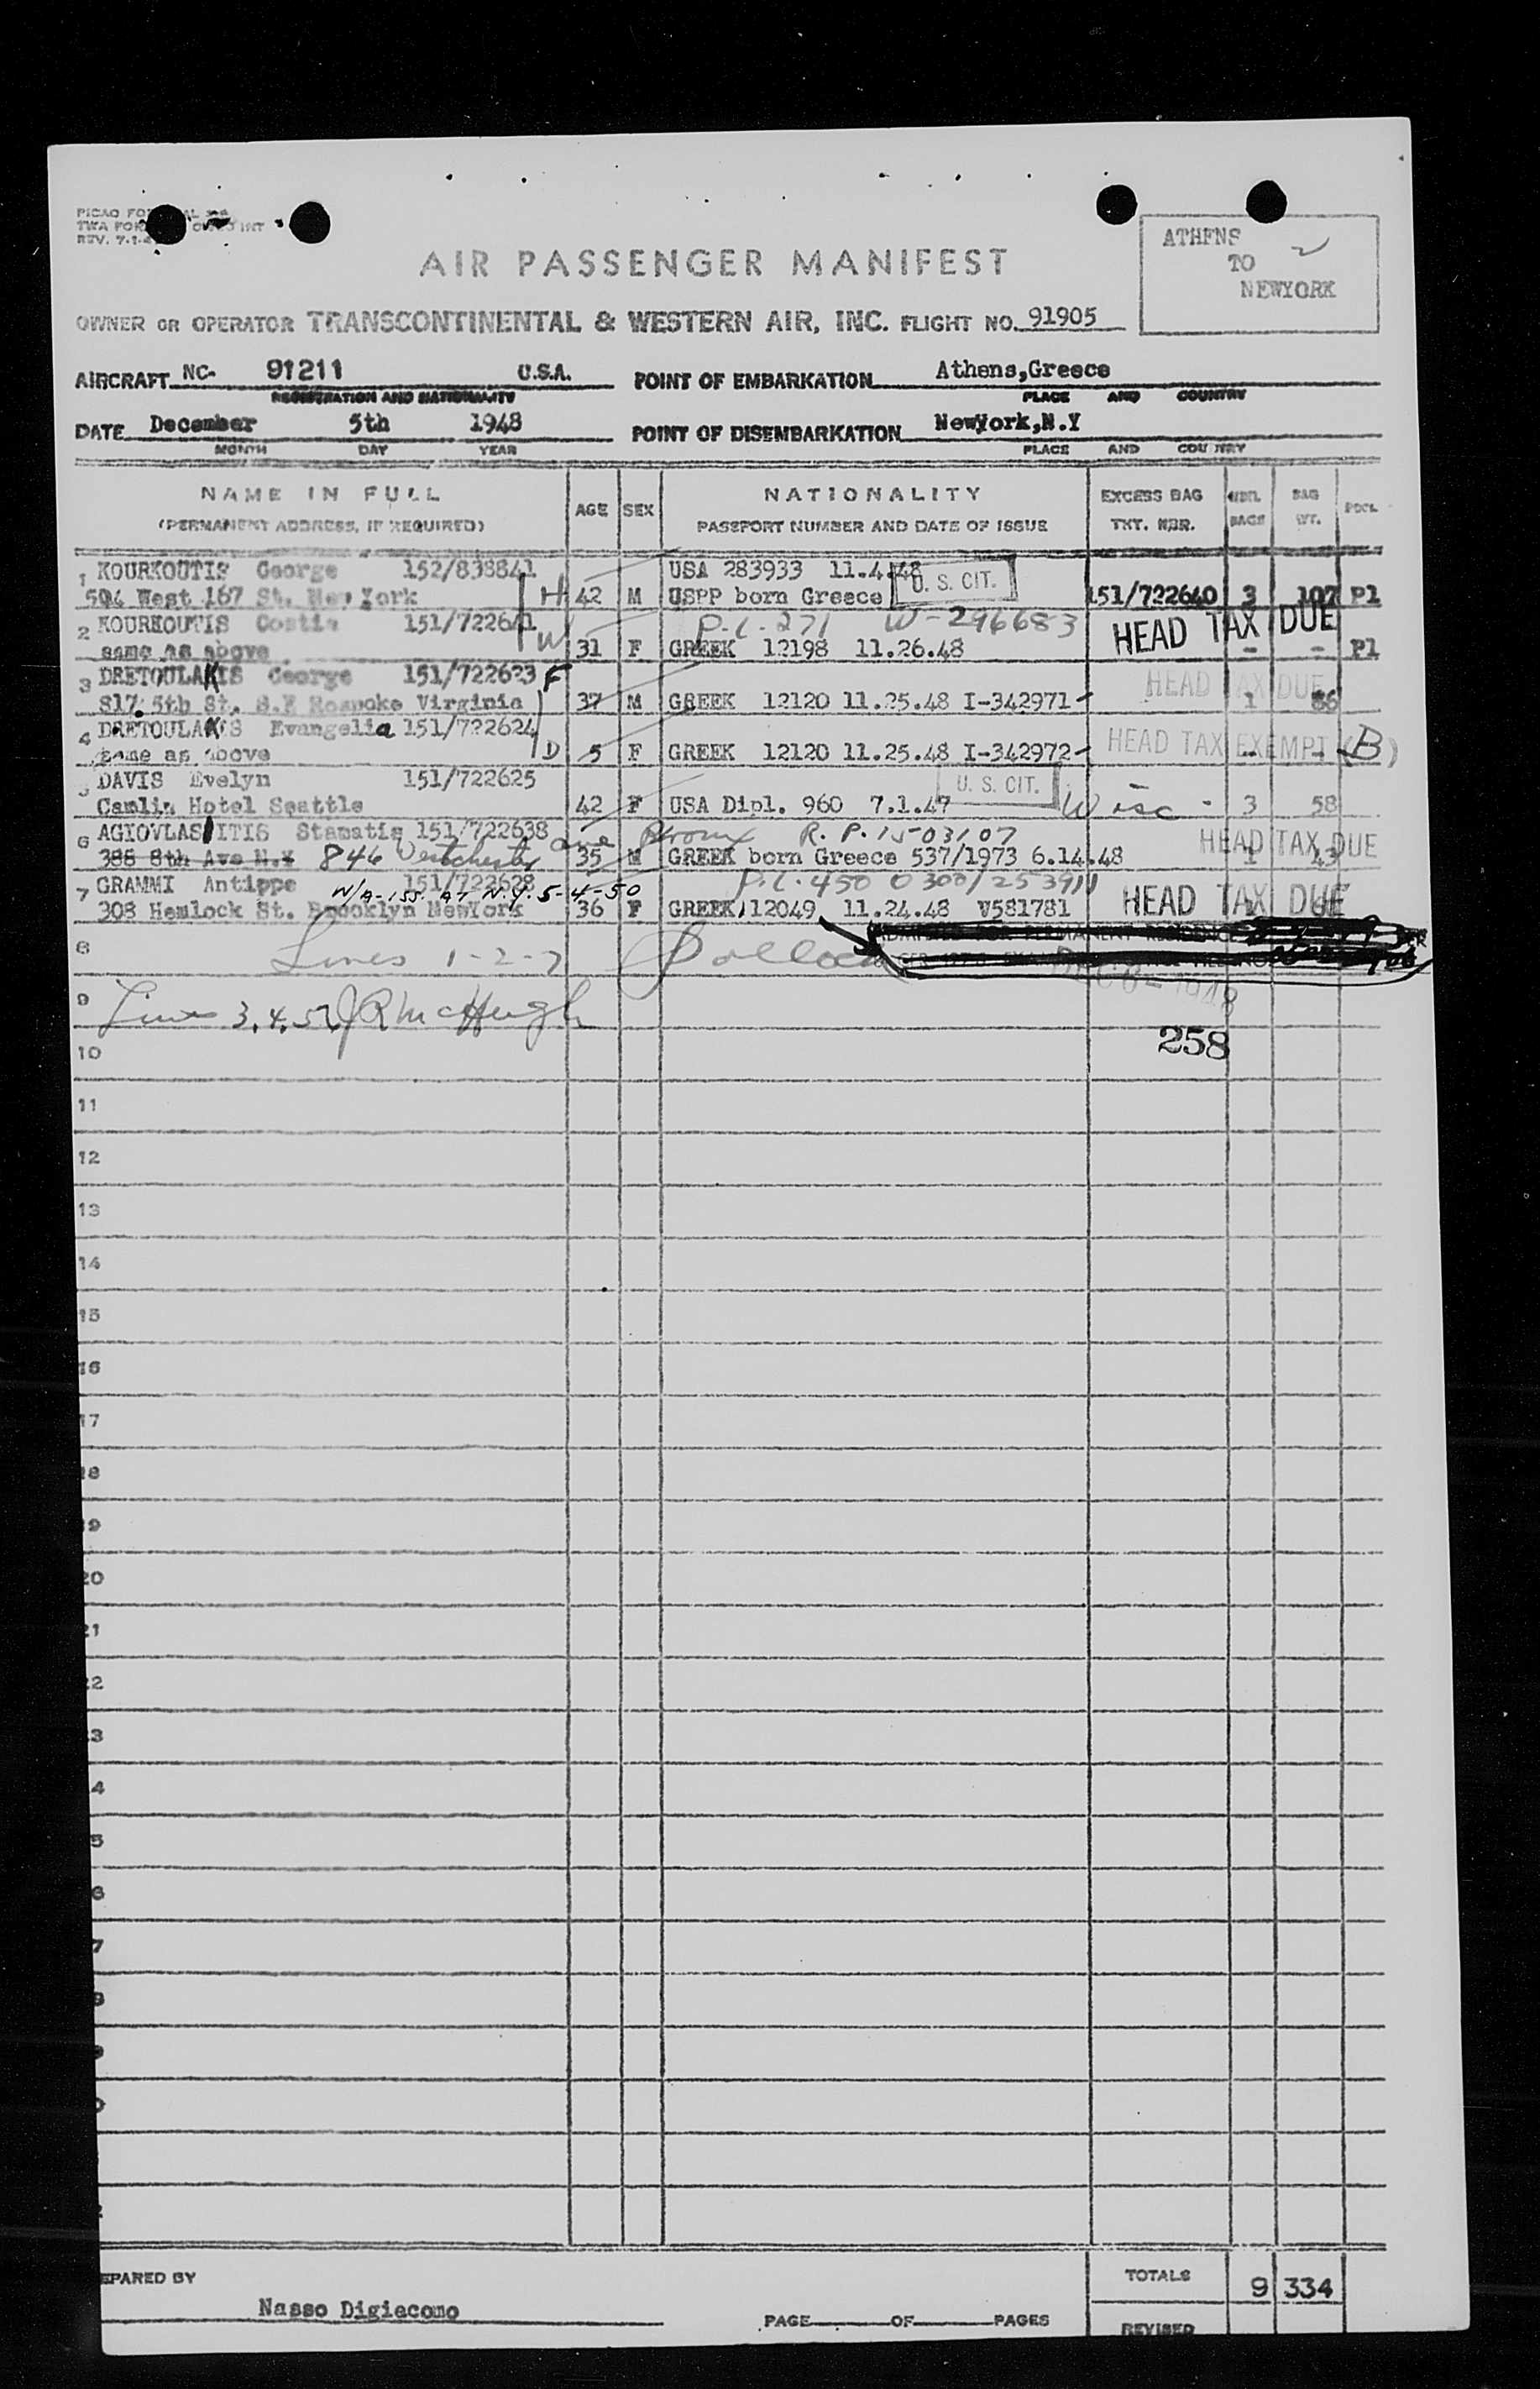 REV. 7-1-4
ATHENS
TO
NEWYORK
AIR PASSENGER MANIFEST
OWNER OR OPERATOR TRANSCONTINENTAL & WESTERN AIR, INC. FLIGHT NO. 91905
AIRCRAFT NC- 91211 U.S.A. POINT OF EMBARKATION Athens,Greece
REGISTRATION AND NATIONALITY PLACE AND COUNTRY
DATE December 5th 1948 POINT OF DISEMBARKATION NewYork,N.Y
MONTH DAY YEAR PLACE AND COUNTRY
NAME IN FULL AGE SEX NATIONALITY EXCESS BAG BAG
(PERMANENT ADDRESS, IF REQUIRED) PASSPORT NUMBER AND DATE OF ISSUE TKT. NBR. BAGS WT.
1 KOURKOUTIS George 152/838841 USA 283933 11.4.48 U. S. CIT.
504 West 167 St. New York H 42 M USPP born Greece 151/722640 3 107 P1
2 KOURKOUTIS Costia 151/722641 P.L.271 W-296683 HEAD TAX DUE
same as above W 31 F GREEK 12198 11.26.48 - - P1
3 DRETOULAKIS George 151/722623 F HEAD TAX DUE
817. 5th St. S.E Roanoke Virginia 37 M GREEK 12120 11.25.48 I-342971 1 86
4 DRETOULAKIS Evangelia 151/722624 HEAD TAX EXEMPT (B)
same as above D 5 F GREEK 12120 11.25.48 I-342972 - -
5 DAVIS Evelyn 151/722625 U. S. CIT.
Camlin Hotel Seattle 42 F USA Dipl. 960 7.1.47 Wisc - 3 58
6 AGIOVLASITIS Stamatis 151/722638 ave Bronx R.P.1503107 HEAD TAX DUE
388 8th Ave N.Y 846 Westchester 35 M GREEK born Greece 537/1973 6.14.48 1 43
7 GRAMMI Antippe 151/722628 W/A-155. AT N.Y. 5-4-50 P.L.450 0300/253911 HEAD TAX DUE
308 Hemlock St. Brooklyn NewYork 36 F GREEK 12049 11.24.48 V581781
8 Lines 1-2-7 Pollock
9 Lines 3.4.5 JR McHugh 1948
10 258
11
12
13
14
15
16
17
18
19
20
21
22
23
24
25
26
27
PREPARED BY
Nasso Digiacomo
PAGE OF PAGES
TOTALS 9 334
REVISED